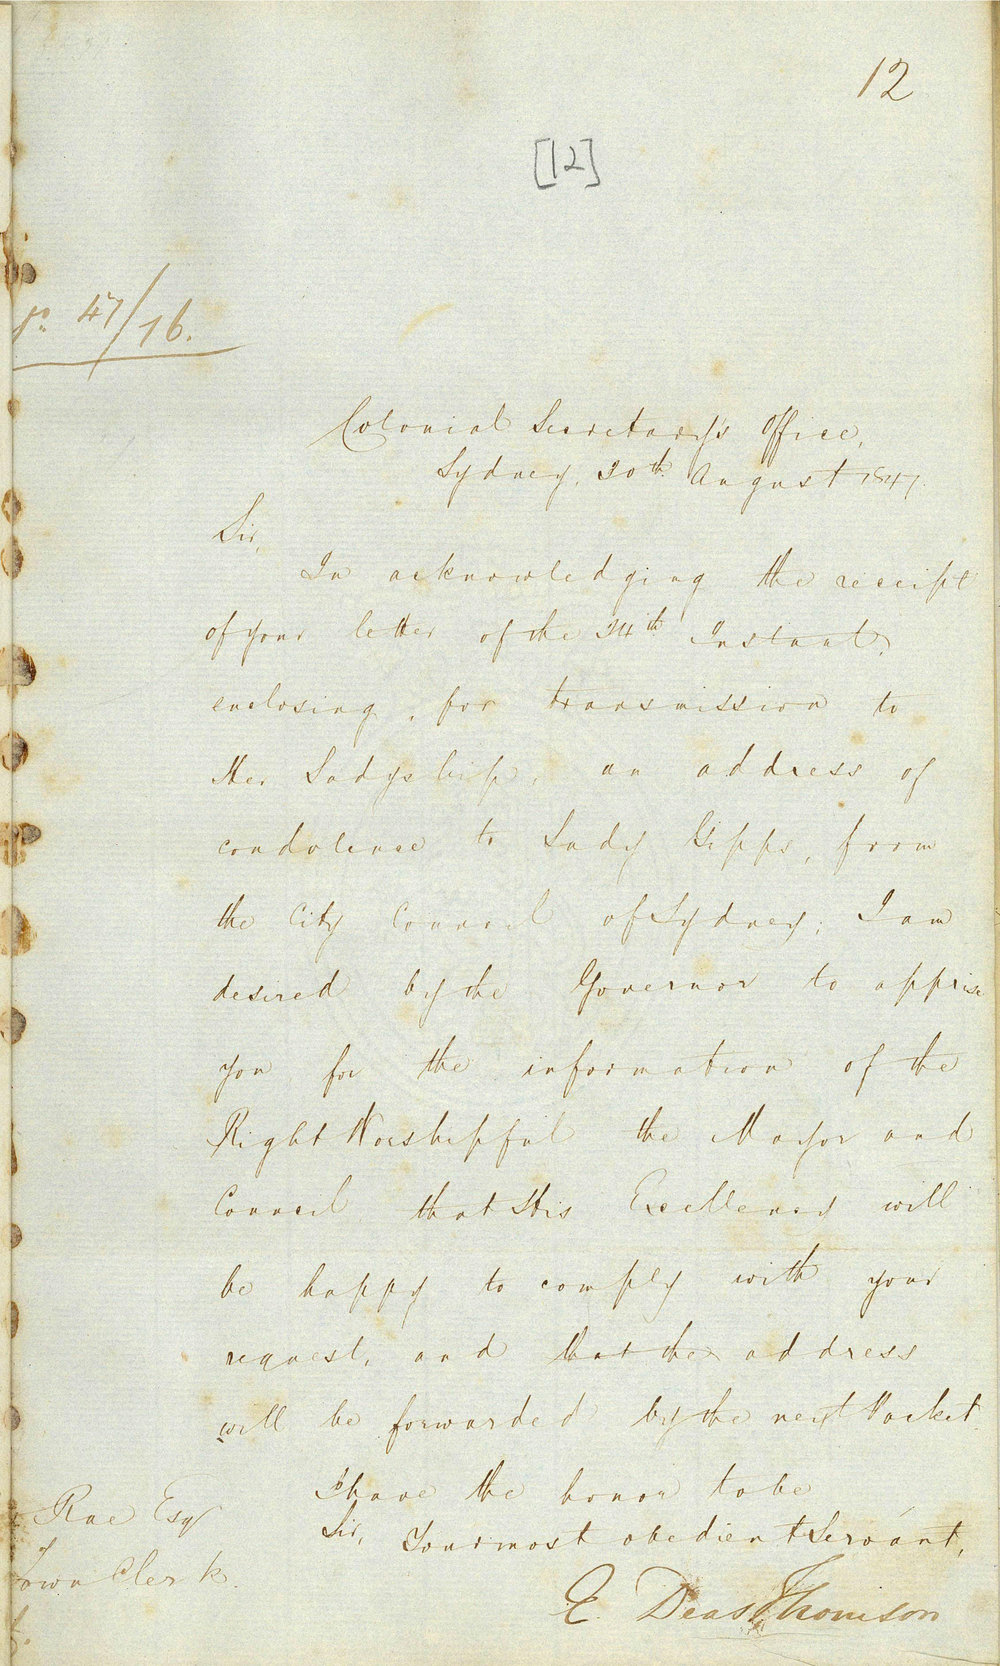 12
[12]
No. 47/76.
Colonial Secretary's Office,
Sydney, 30th August 1847.
Sir,
In acknowledging the receipt
of your letter of the 24th Instant,
enclosing, for transmission to
Her Ladyship, an address of
condolence to Lady Gipps, from
the City Council of Sydney; I am
desired by the Governor to apprise
you for the information of the
Right Worshipful the Mayor and
Council that His Excellency will
be happy to comply with your
request, and that the address
will be forwarded by the next Packet.
I have the honor to be
Sir,
Your most obedient Servant,
E. Deas Thomson
Rae Esqr
Town Clerk.